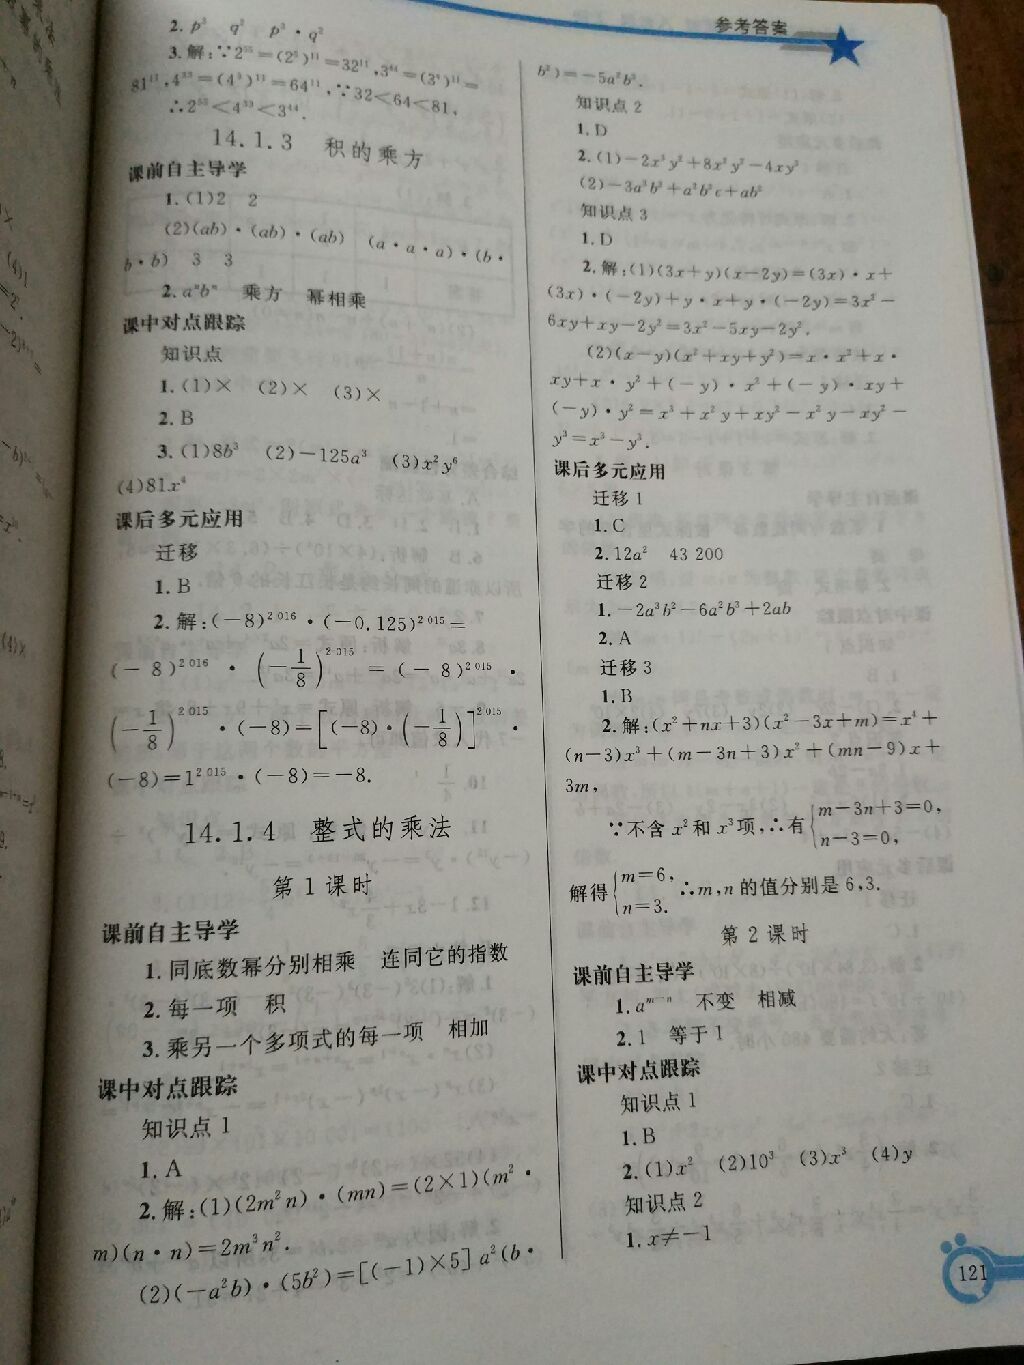 参考答案
2. p³ q² p³·q²
3. 解:∵2⁵⁵=(2⁵)¹¹=32¹¹,3⁴⁴=(3⁴)¹¹=
81¹¹,4³³=(4³)¹¹=64¹¹,∵32<64<81,
∴2⁵⁵<4³³<3⁴⁴.
14.1.3 积的乘方
课前自主导学
1. (1)2 2
(2)(ab)·(ab)·(ab) (a·a·a)·(b·
b·b) 3 3
2. aⁿbⁿ 乘方 幂相乘
课中对点跟踪
知识点
1. (1)× (2)× (3)×
2. B
3. (1)8b³ (2)-125a³ (3)x²y⁶
(4)81x⁴
课后多元应用
迁移
1. B
2. 解:(-8)²⁰¹⁶·(-0.125)²⁰¹⁵=
(-8)²⁰¹⁶·(-1/8)²⁰¹⁵=(-8)²⁰¹⁵·
(-1/8)²⁰¹⁵·(-8)=[(-8)·(-1/8)]²⁰¹⁵·
(-8)=1²⁰¹⁵·(-8)=-8.
14.1.4 整式的乘法
第1课时
课前自主导学
1. 同底数幂分别相乘 连同它的指数
2. 每一项 积
3. 乘另一个多项式的每一项 相加
课中对点跟踪
知识点1
1. A
2. 解:(1)(2m²n)·(mn)=(2×1)(m²·
m)(n·n)=2m³n².
(2)(-a²b)·(5b²)=[(-1)×5]a²(b·
b²)=-5a²b³.
知识点2
1. D
2. (1)-2x³y²+8x²y²-4xy³
(2)-3a³b³+a²b²c+ab²
知识点3
1. D
2. 解:(1)(3x+y)(x-2y)=(3x)·x+
(3x)·(-2y)+y·x+y·(-2y)=3x²-
6xy+xy-2y²=3x²-5xy-2y².
(2)(x-y)(x²+xy+y²)=x·x²+x·
xy+x·y²+(-y)·x²+(-y)·xy+
(-y)·y²=x³+x²y+xy²-x²y-xy²-
y³=x³-y³.
课后多元应用
迁移1
1. C
2. 12a² 43 200
迁移2
1. -2a³b²-6a²b³+2ab
2. A
迁移3
1. B
2. 解:(x²+nx+3)(x²-3x+m)=x⁴+
(n-3)x³+(m-3n+3)x²+(mn-9)x+
3m,
∵不含x²和x³项,∴有{m-3n+3=0,
n-3=0,
解得{m=6,
n=3. ∴m,n的值分别是6,3.
第2课时
课前自主导学
1. aᵐ⁻ⁿ 不变 相减
2. 1 等于1
课中对点跟踪
知识点1
1. B
2. (1)x² (2)10³ (3)x³ (4)y
知识点2
1. x≠-1
121